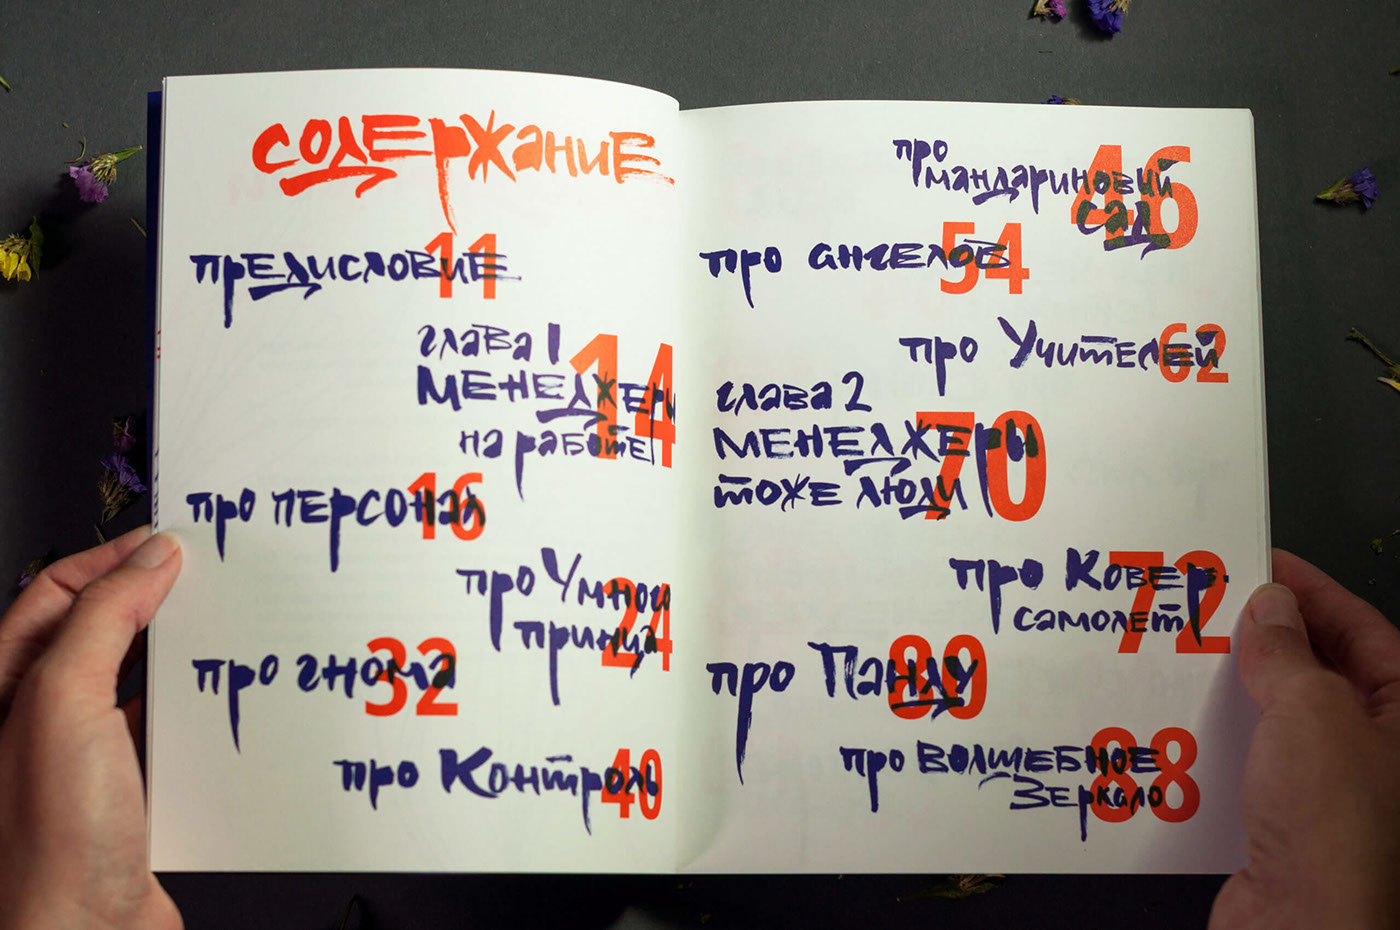 содержание
предисловие 11
глава 1
менеджеры 14
на работе
про персонал 16
про Умного
принца 24
про гнома 32
про Контроль 40
про
мандариновий 46
сад
про ангелов 54
про Учителей 62
глава 2
менеджеры 70
тоже люди
про Ковер-
самолет 72
про Панду 80
про волшебное
зеркало 88